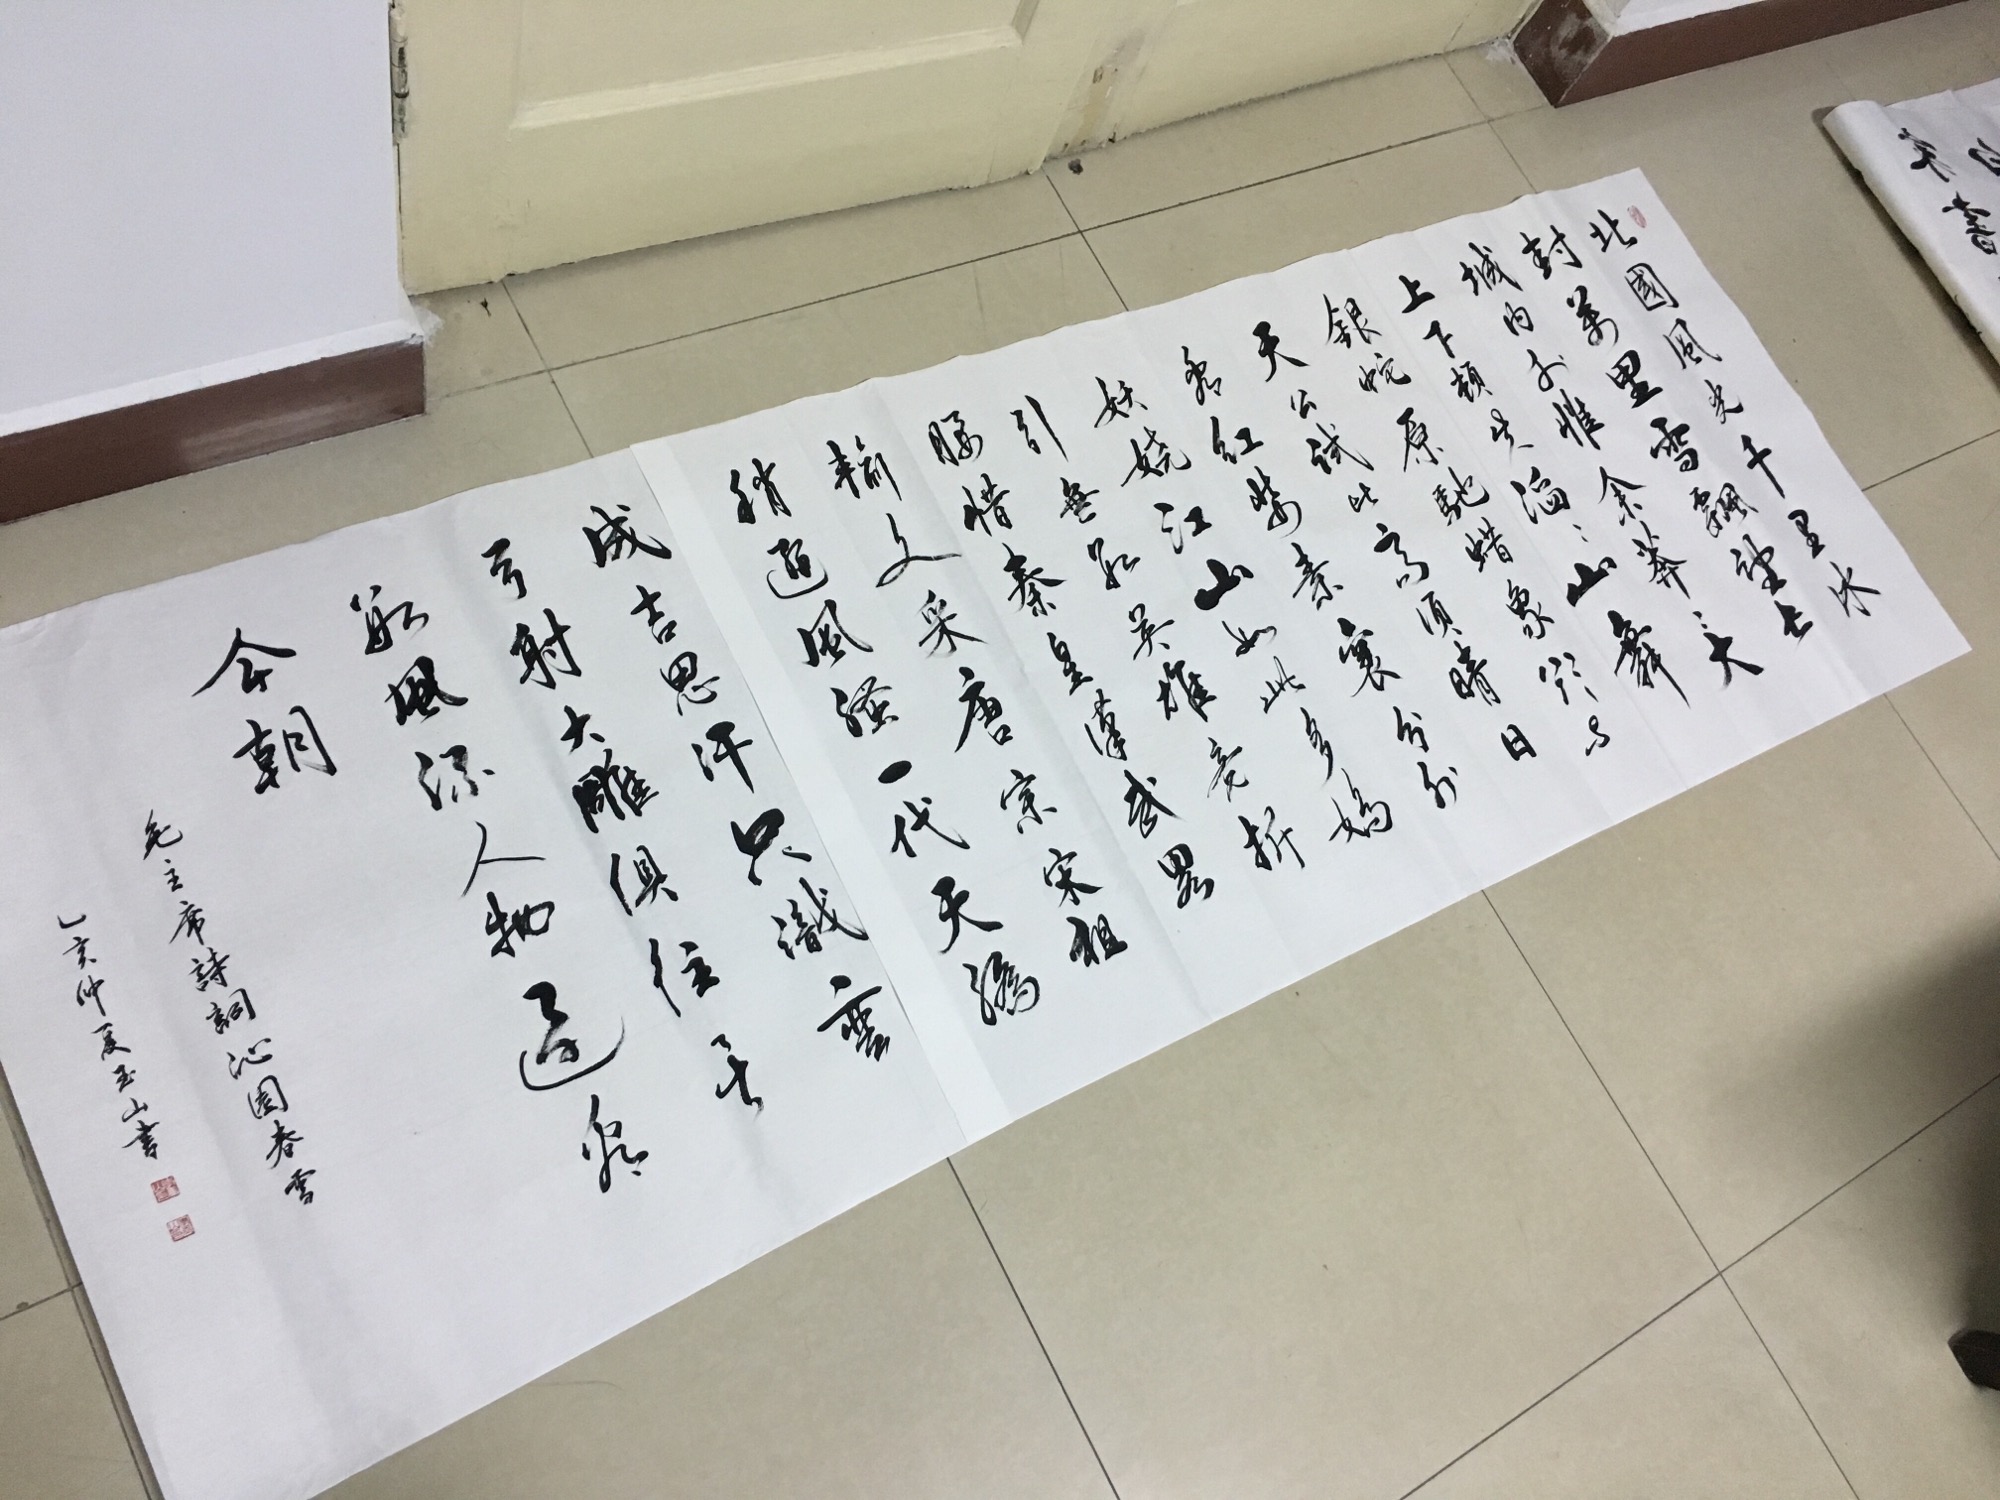 北國風光千里冰
封萬里雪飄望长
城内外惟余莽〻大
上下頓失滔〻山舞
銀蛇原馳蜡象欲与
天公試比高須晴日
看紅装素裹分外
妖嬈江山如此多嬌
引無數英雄竞折
腰惜秦皇漢武畧
輸文采唐宗宋祖
稍遜風騷一代天驕
成吉思汗只識彎
弓射大雕俱往矣
數風流人物還看
今朝
毛主席詩詞沁園春雪
乙亥仲夏玉山書